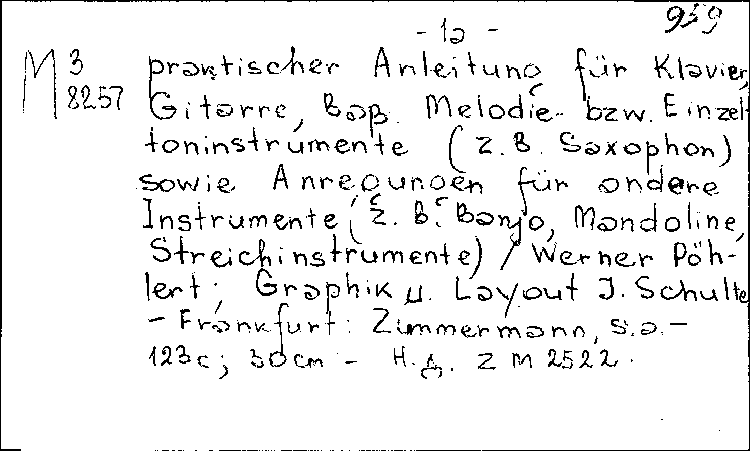 959
- 1a -
M 3 praktischer Anleitung für Klavier,
8257 Gitarre, Baß. Melodie- bzw. Einzel-
toninstrumente (z.B. Saxophon)
sowie Anregungen für andere
Instrumente (z. B. Banjo, Mandoline,
Streichinstrumente) / Werner Pöh-
lert; Graphik u. Layout J. Schulte
- Frankfurt: Zimmermann, s.a. -
123c; 30cm - Н.д. Z M 2522.